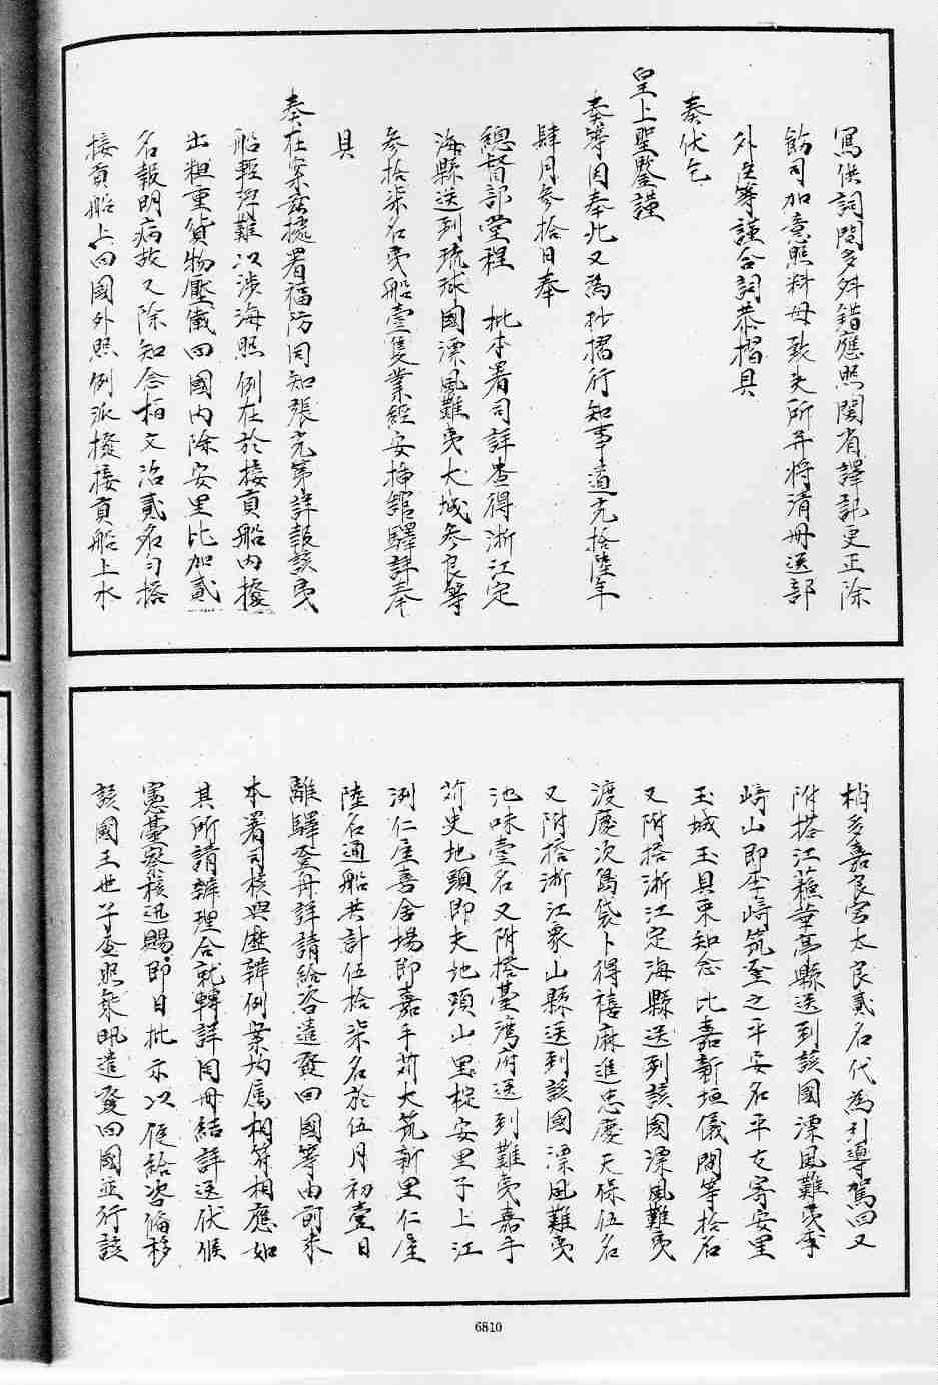 寫供詞間多舛錯應照閩省譯訊更正除
飭司加意照料毋致失所并將清冊送部
外臣等謹合詞恭摺具
奏伏乞
皇上聖鑒謹
奏等因奉此又為抄摺行知事道光拾陸年
肆月參拾日奉
總督部堂程　批本署司詳查得浙江定
海縣送到琉球國漂風難夷大城參良等
參拾柒名夷船壹隻業經安插館驛詳奉
具
奏在案茲據署福防同知張堯第詳報該夷
船輕浮難以涉海照例在於接貢船內撥
出粗重貨物壓儎回國內除安里比加貳
名報明病故又除知念柏文冶貳名勻搭
接貢船上回國外照例派撥接貢船上水
梢多嘉良宮太良貳名代為引導駕回又
附搭江蘇華亭縣送到該國漂風難夷李
崎山即李崎筑登之平安名平右寄安里
玉城玉具東知念比嘉新垣儀間等拾名
又附搭浙江定海縣送到該國漂風難夷
渡慶次島袋卜得禧麻進忠慶天保伍名
又附搭浙江象山縣送到該國漂風難夷
池味壹名又附搭臺灣府送到難夷嘉手
苅史地頭即夫地頭山里椗安里子上江
洌仁屋喜舍場即嘉手苅大筑新里仁屋
陸名通船共計伍拾柒名於伍月初壹日
離驛登舟詳請給咨遣發回國等由前來
本署司核與歷辦例案均屬相符相應如
其所請辦理合就轉詳同冊結詳送伏候
憲臺察核迅賜即日批示以便給咨備移
該國王世子查照衆夷遣發回國並行該
6810